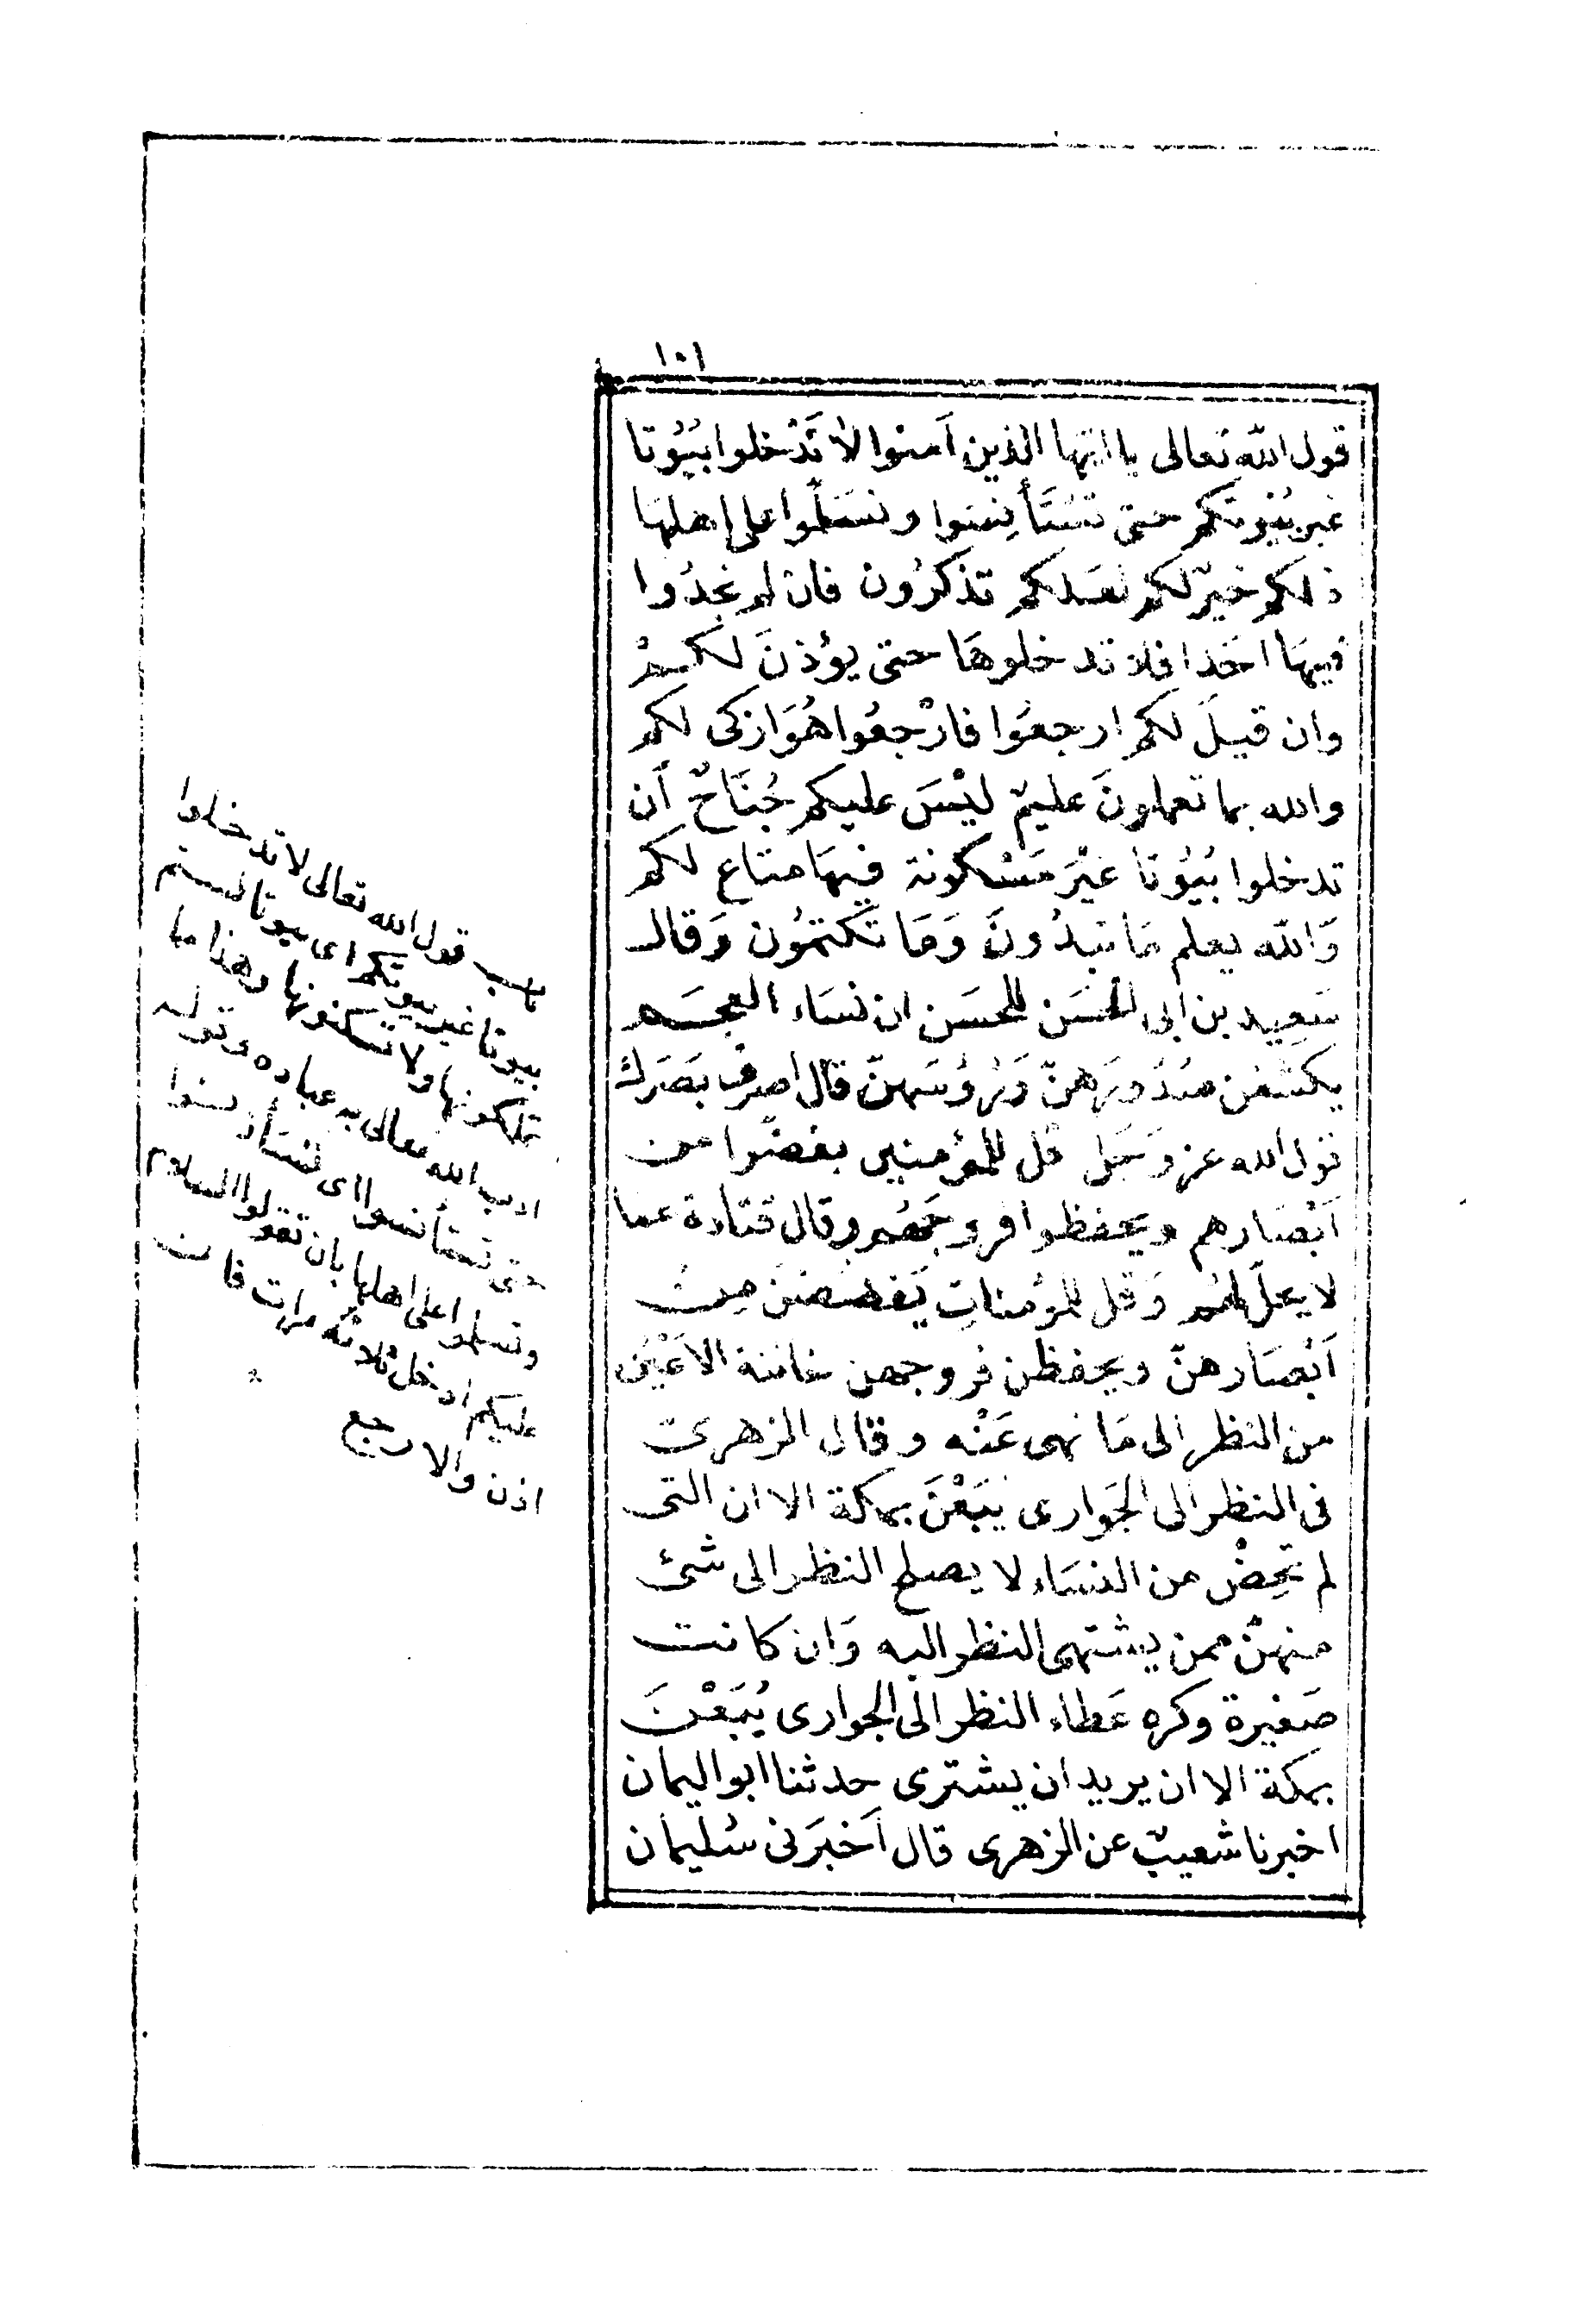 ١٠١
قول الله تعالى يا ايها الذين آمنوا لا تَدْخلوا بُيُوتا
غير بُيُوتكم حتى تَسْتَأنِسوا وتسَلّموا على اهلهَا
ذلكم خيرٌ لكم لعَلكم تذكرُون فان لم تجدُوا
فيهَا احَدا فلا تدخلوهَا حتى يؤذنَ لكمْ
وان قيلَ لكم ارجعُوا فارْجعُوا هُوَ ازكى لكم
والله بما تعملونَ عليمٌ ليْسَ عليكم جُنَاحٌ أن
تدخلوا بُيُوتا غيْرَ مَسْكونة فيهَا متاع لكم
وَالله يعلم مَا تبدُونَ وَمَا تكتمُون وَقال
سَعِيد بن ابى الحَسَن للحسَن ان نسَاء العجَم
يكشفن صُدُورَهنّ وَرُؤُسَهنّ قال اصرِفْ بَصَرَك
قول الله عز وَجَل قل للمؤمنين يغضّوا من
اَبْصَارهم ويحفظوا فروجَهُم وقال قتادة عما
لا يحلّ لهُم وَقل للمؤمناتِ يَغضضنَ مِنْ
اَبْصَارهنّ ويحفظن فروجهن خائنة الاَعْيُن
من النظر الى مَا نهى عَنْه وقال الزهرى
فى النظر الى الجَوارى يُبَعْنَ بمكة الا ان التى
لم تحِضْ من النسَاء لا يصلح النظر الى شئ
منهنّ ممن يشتهى النظر اليه وَان كانت
صَغيرة وكره عَطاء النظر الى الجوارى يُبَعْنَ
بمكة الا ان يريد ان يشترى حدثنا ابو اليمان
اخبرنا شعيبٌ عن الزهرى قال اَخبرَنى سُليمان
باب قول الله تعالى لا تدخلوا
بيوتا غير بيوتكم اى بيوتا لستم
تملكونها ولا تسكنونها وهذا مما
ادب الله تعالى به عباده وقوله
حتى تستأنسوا اى تستأذنوا
وتسلموا على اهلها بان تقولوا السلام
عليكم ادخل ثلاثة مرات فان
اذن والا رجع